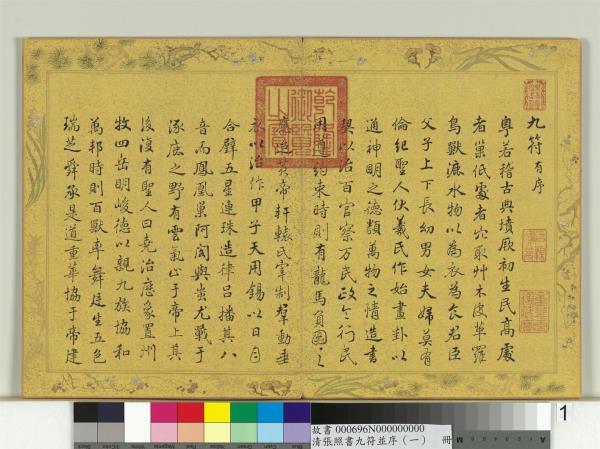 九符有序
粵若稽古典墳厥初生民高處
者巢低處者穴取艸木皮革羅
鳥獸漉水物以為衣為食君臣
父子上下長幼男女夫婦莫有
倫紀聖人伏羲氏作始畫卦以
通神明之德類萬物之情造書
契以治百官察萬民政令行民
用遵約束時則有龍馬負圖之
黃帝軒轅氏宰制羣動垂
衣以治作甲子天用錫以日月
合璧五星連珠造律呂播其八
音而鳳凰巢阿閣與蚩尤戰于
涿鹿之野有雲氣止于帝上其
後復有聖人曰堯治應象置州
牧四岳明峻德以親九族協和
萬邦時則百獸率舞廷生五色
瑞芝舜承是道重華協于帝建
乾隆御覽之寶
故書 000696N000000000
清張照書九符並序（一） 冊
1